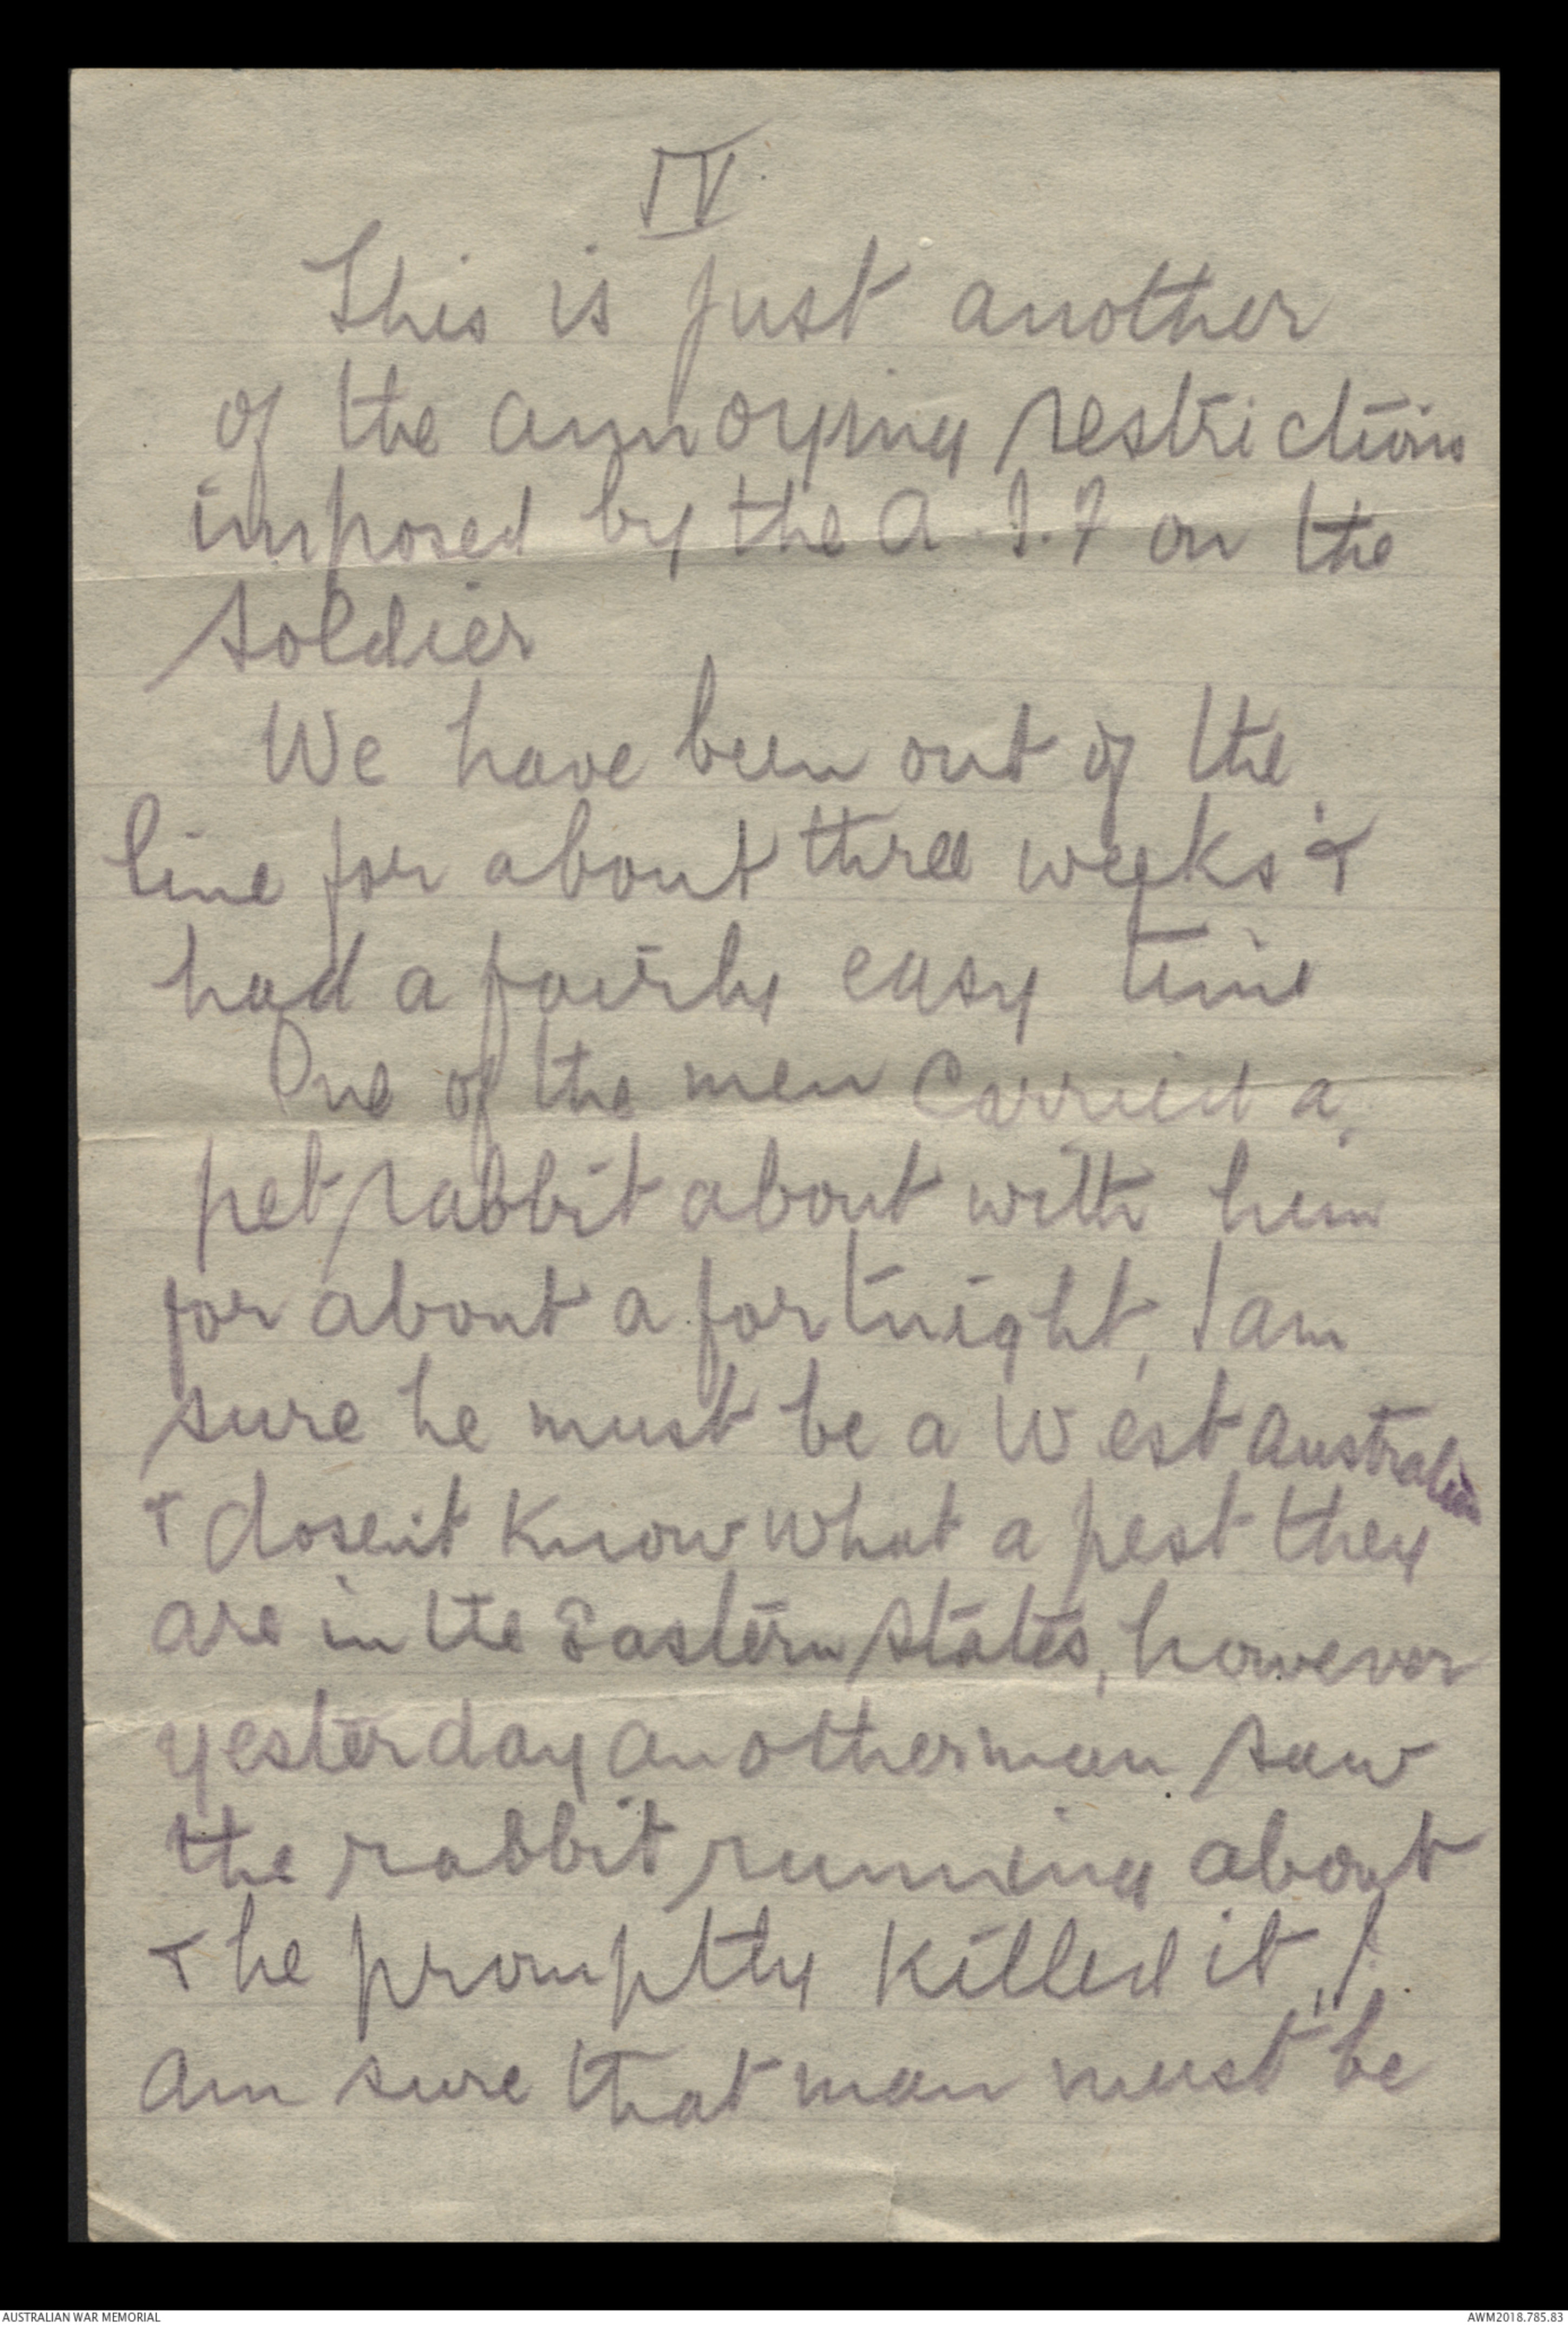 IV
This is just another
of the annoying restrictions
imposed by the A.I.F on the
soldier
We have been out of the
line for about three weeks &
had a fairly easy time
One of the men carried a
pet rabbit about with him
for about a fortnight, I am
sure he must be a West Australian
& dosen't know what a pest they
are in the Eastern States, however
yesterday another man saw
the rabbit running about
& he promptly killed it, I
am sure that man must be
AUSTRALIAN WAR MEMORIAL
AWM2018.785.83